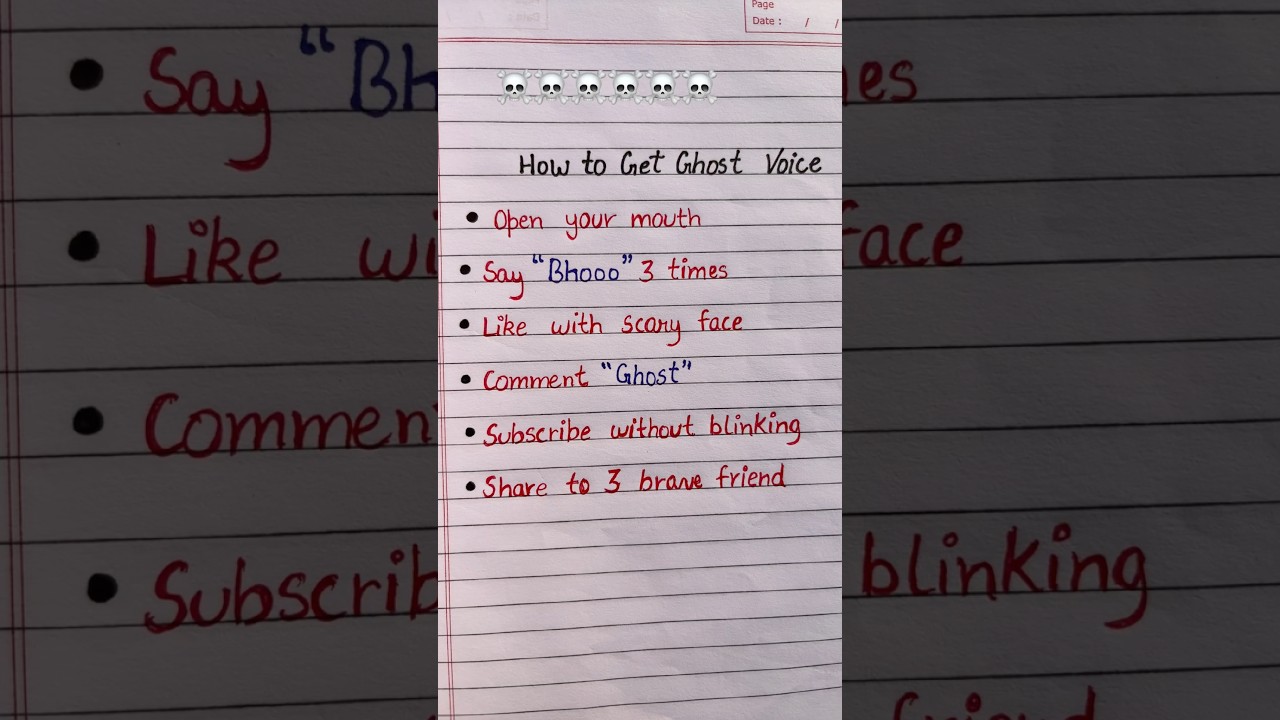 Page
Date : / /
☠️☠️☠️☠️☠️☠️
How to Get Ghost Voice
• Open your mouth
• Say “Bhooo” 3 times
• Like with scary face
• Comment “Ghost”
• Subscribe without blinking
• Share to 3 brave friend